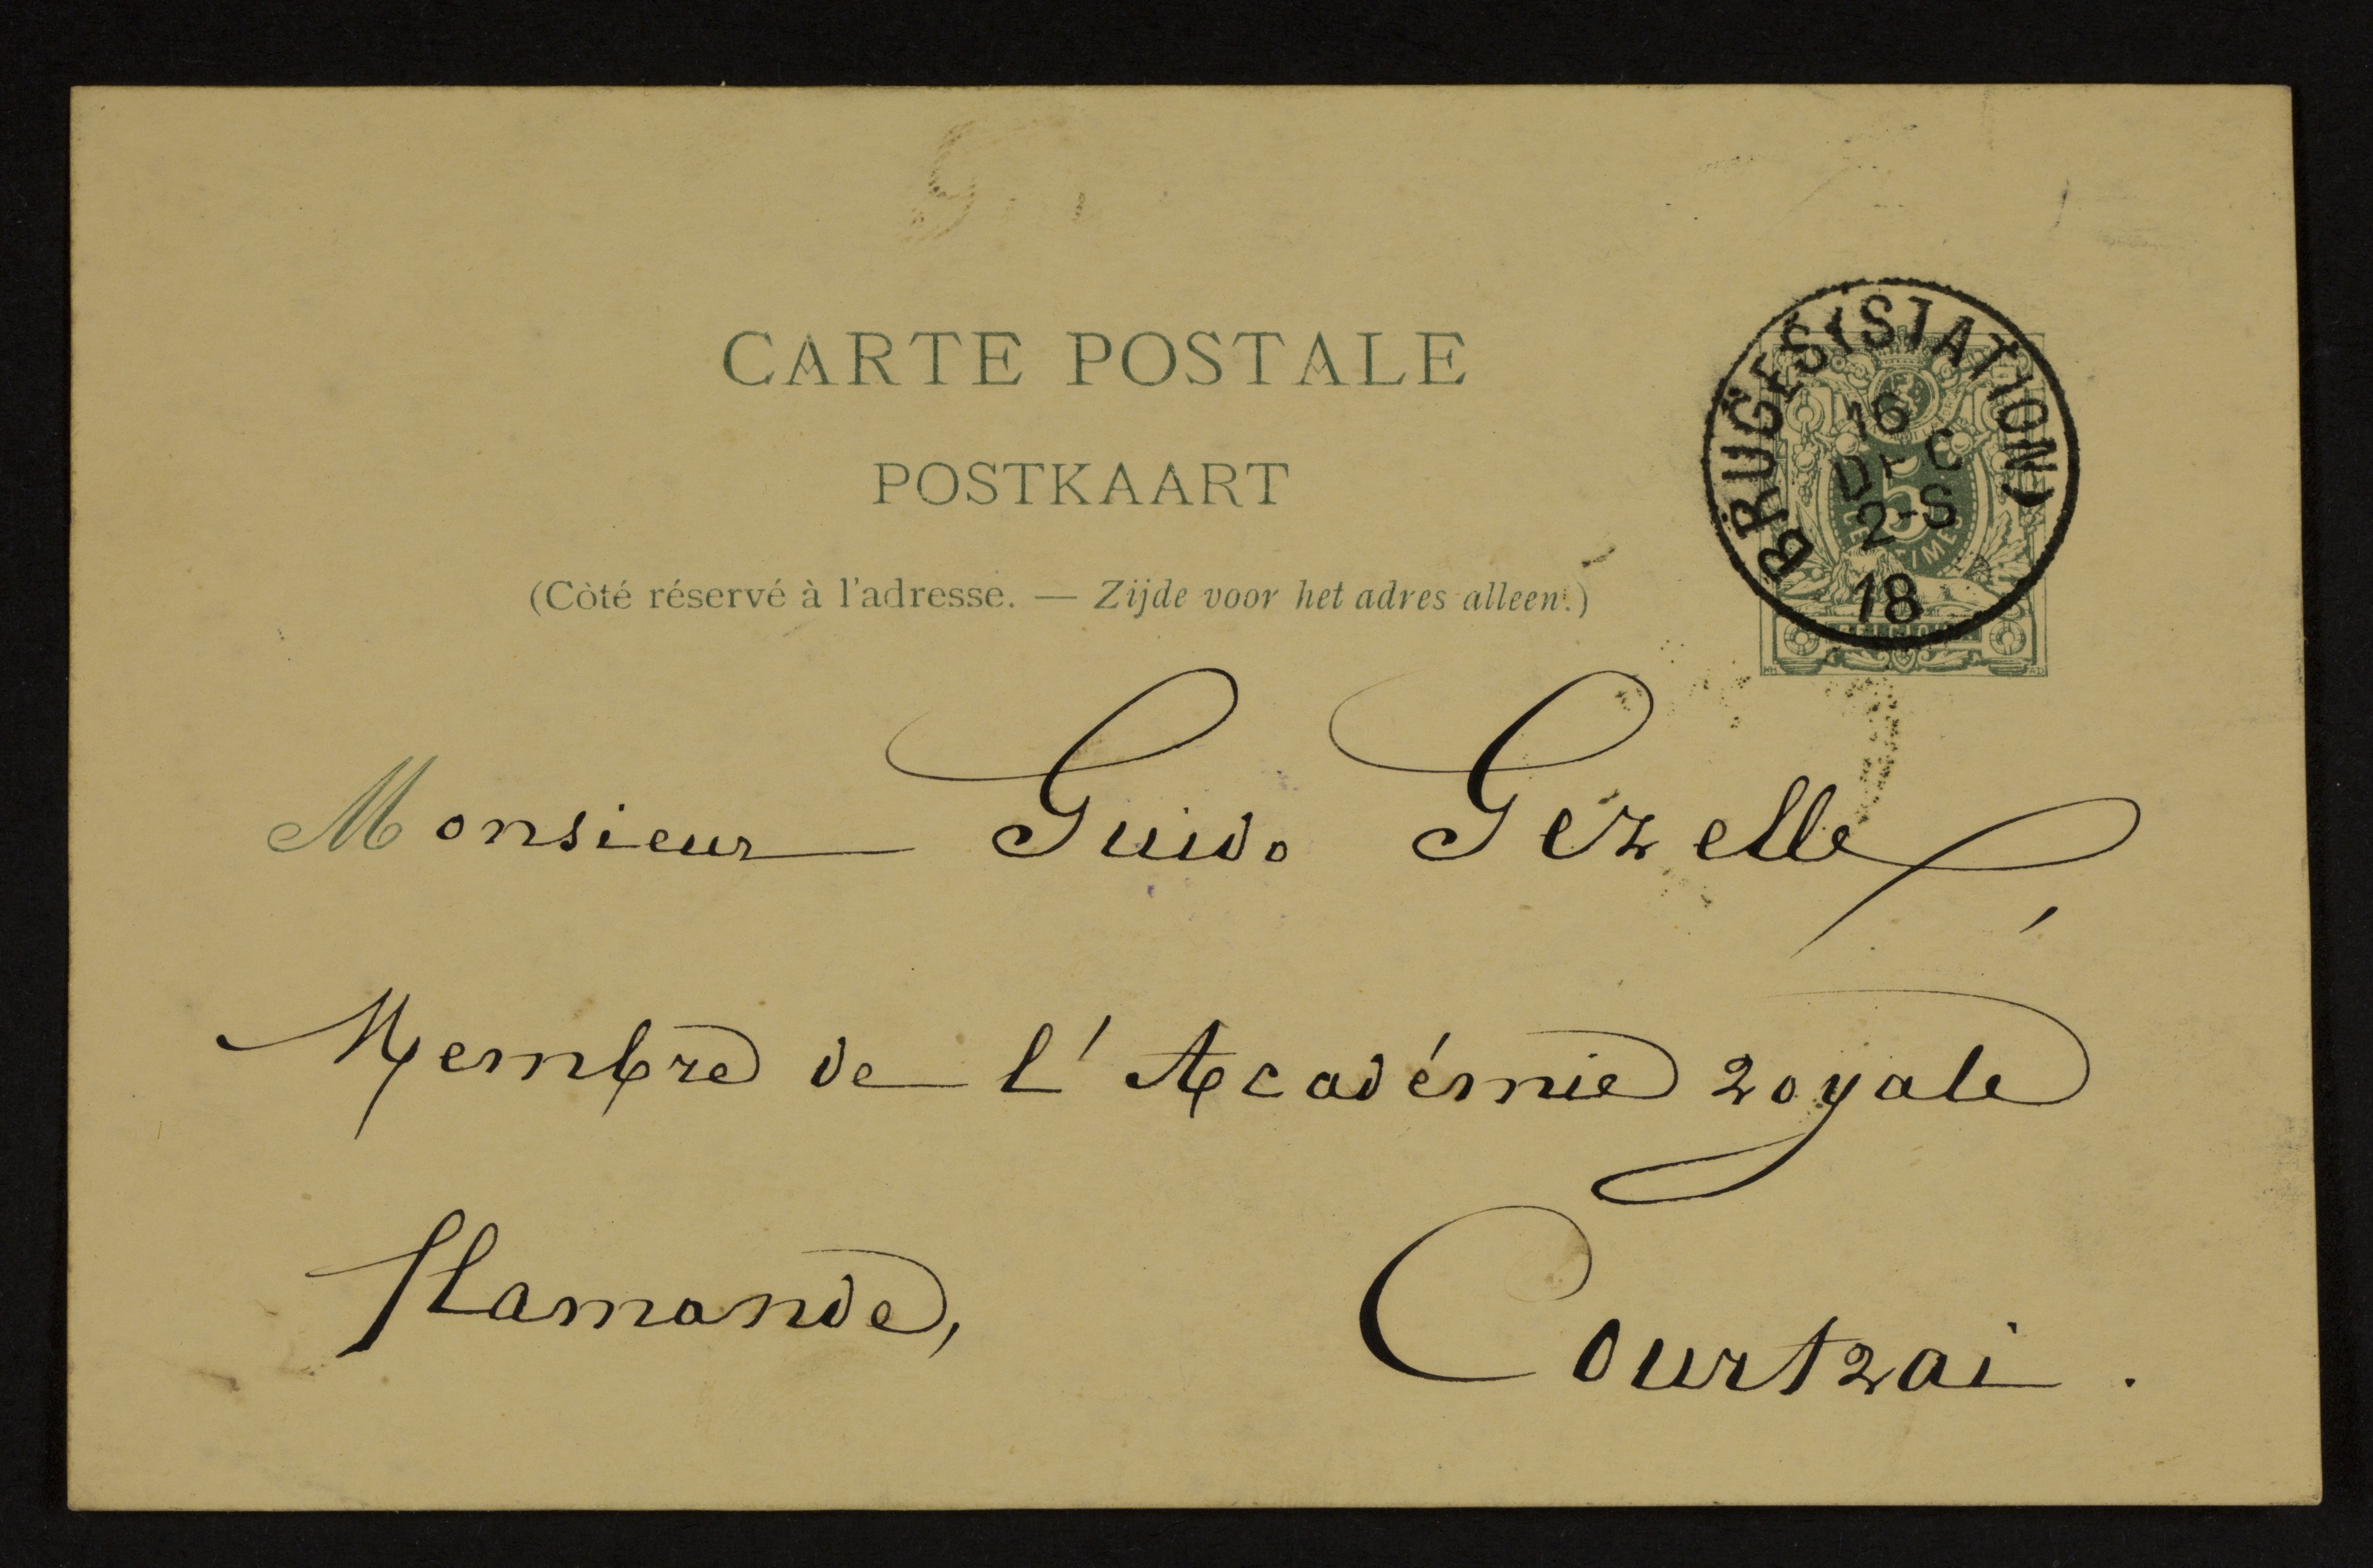 CARTE POSTALE
POSTKAART
(Côté réservé à l'adresse. — Zijde voor het adres alleen.)
BRUGES (STATION)
16
DEC
2-S
18
5
Monsieur Guido Gezelle,
Membre de l'Académie royale
flamande, Courtrai.